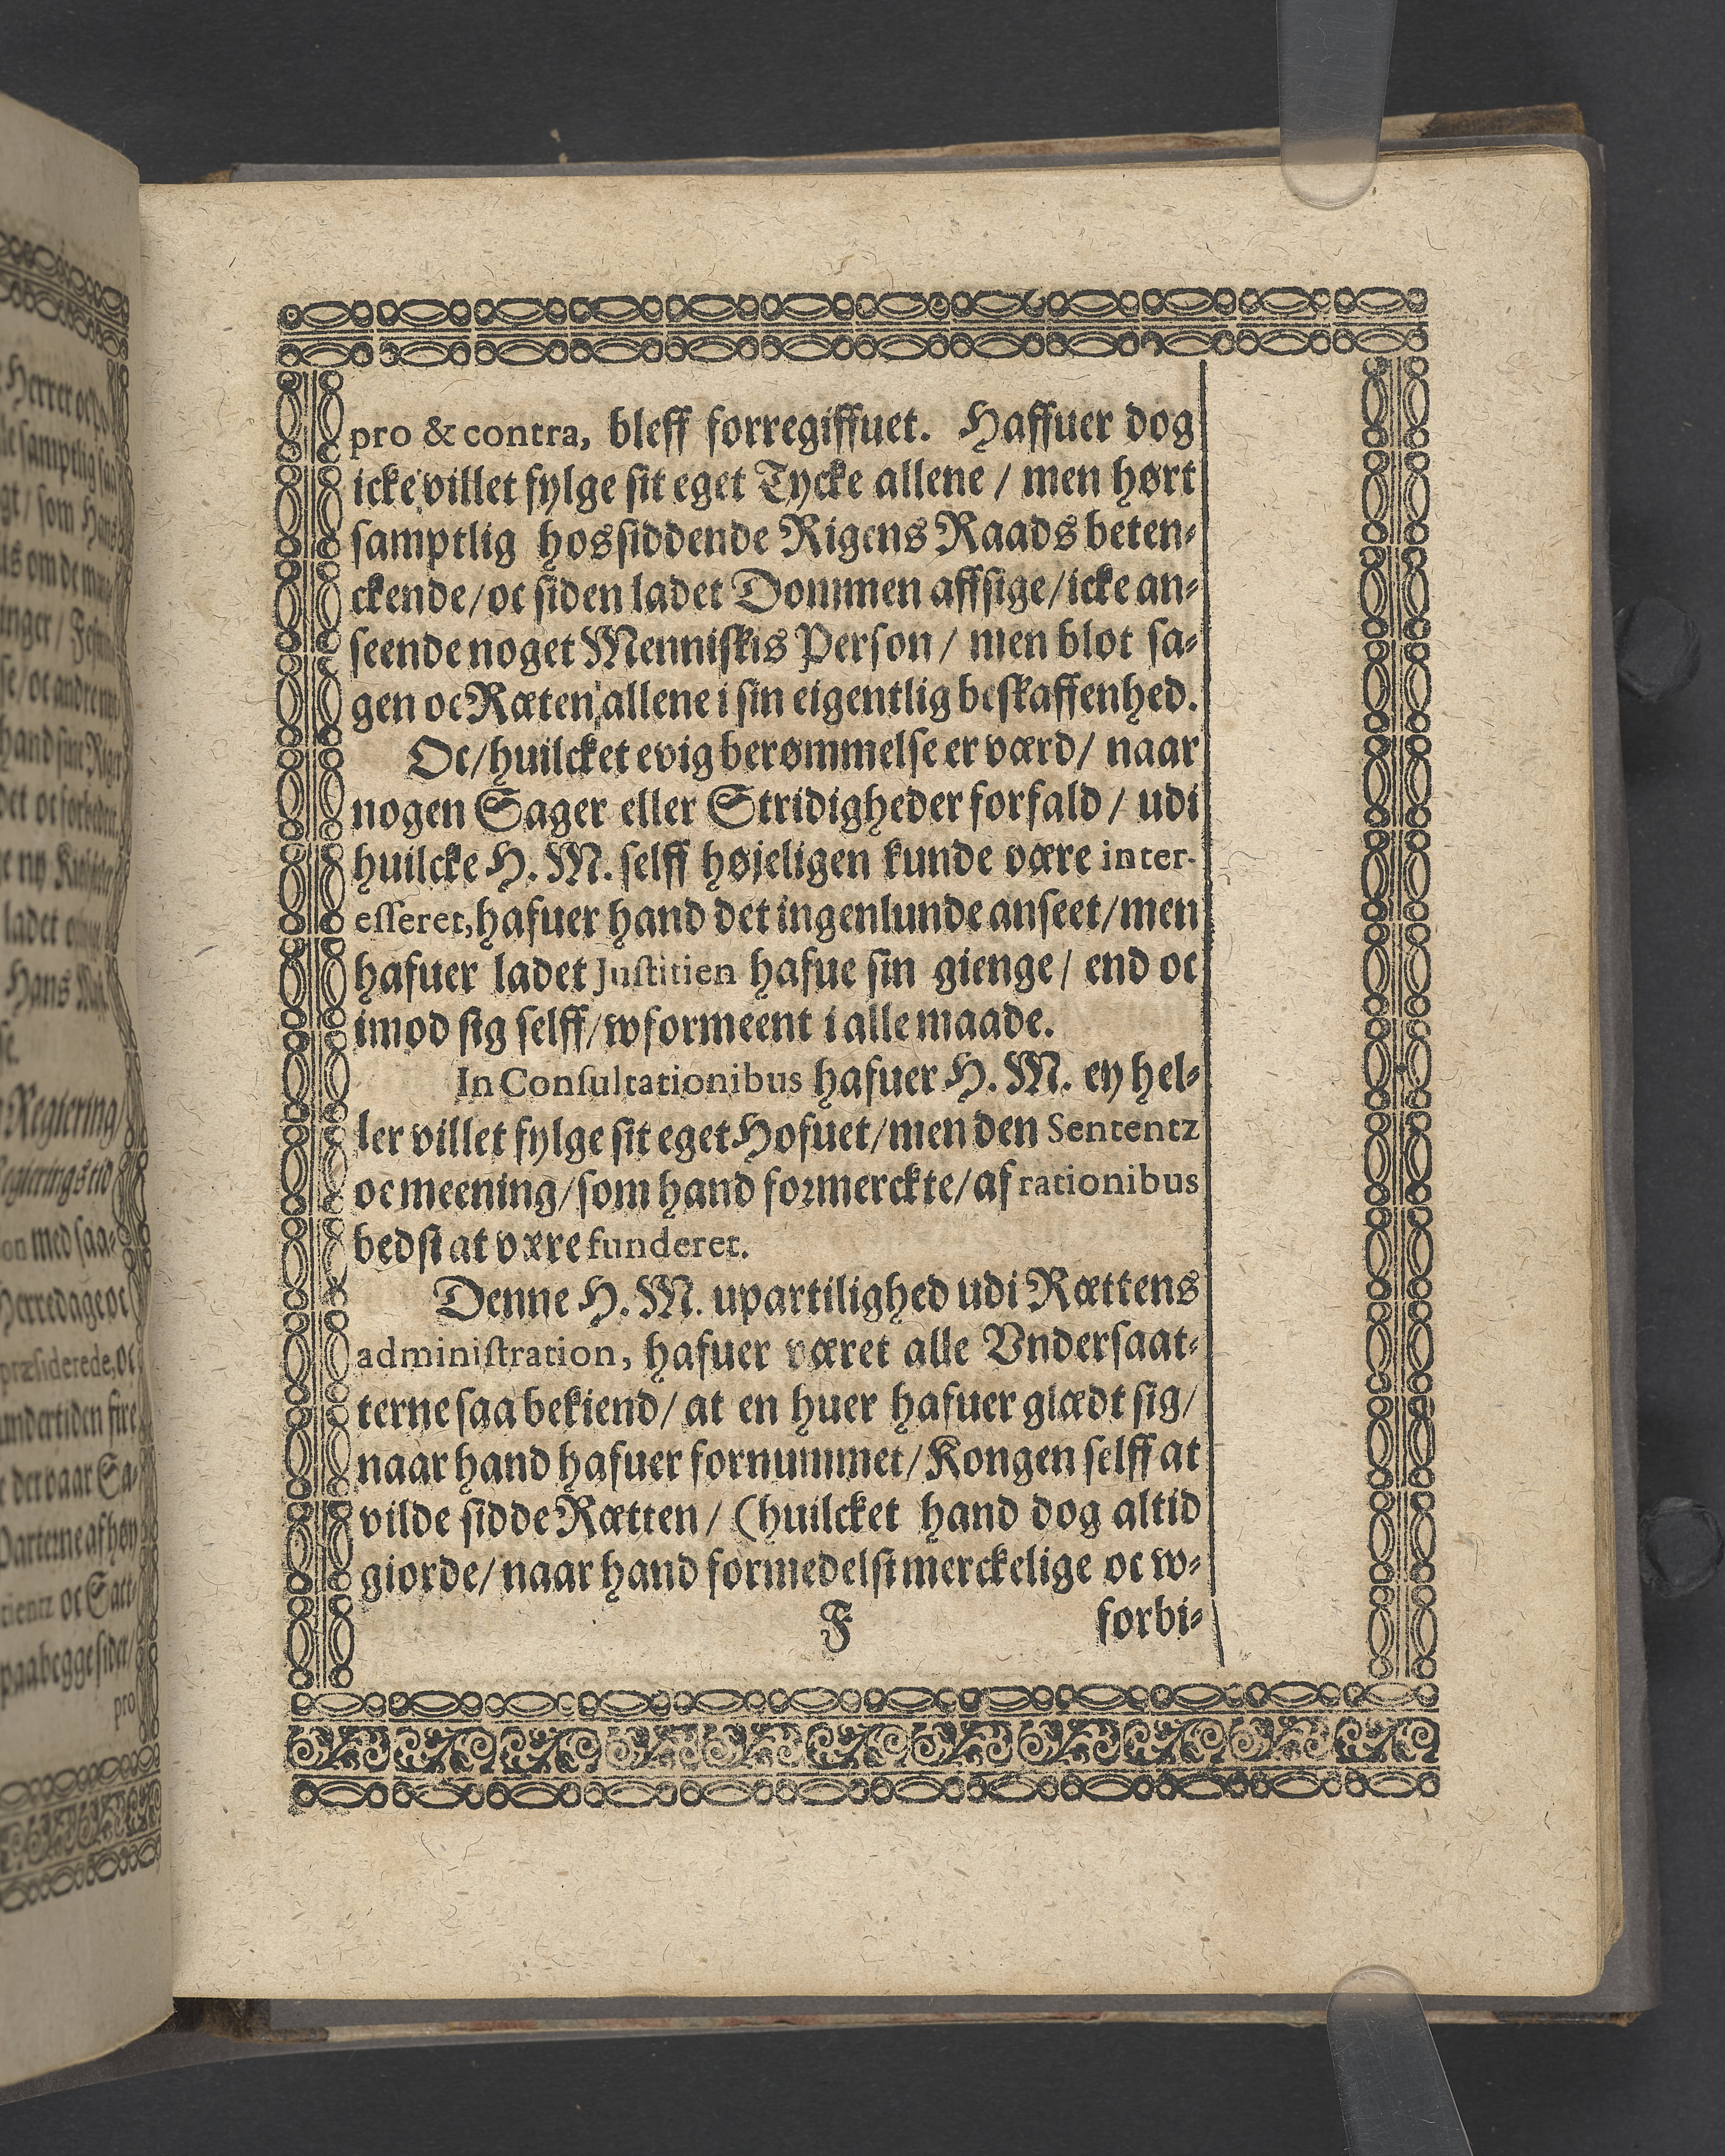 pro & contra, bleff forregiffuet. Haffuer dog
icke villet fylge sit eget Tycke allene / men hørt
samptlig hossiddende Rigens Raads beten-
ckende/oc siden ladet Dommen affsige/icke an-
seende noget Menniskis Person / men blot sa-
gen oc Ræten allene i sin eigentlig beskaffenhed.
Oc/huilcket evig berømmelse er værd/ naar
nogen Sager eller Stridigheder forfald / udi
huilcke H. M. selff højeligen kunde være inter-
esseret, hafuer hand det ingenlunde anseet/men
hafuer ladet Justitien hafue sin gienge/ end oc
imod sig selff/wformeent i alle maade.
In Consultationibus hafuer H. M. ey hel-
ler villet fylge sit eget Hofuet/men den Sententz
oc meening/som hand formerckte/af rationibus
bedst at være funderet.
Denne H. M. upartilighed udi Rættens
administration, hafuer været alle Vndersaat-
terne saa bekiend/ at en huer hafuer glædt sig/
naar hand hafuer fornummet/Kongen selff at
vilde sidde Rætten / (huilcket hand dog altid
giorde/naar hand formedelst merckelige oc w-
F forbi-